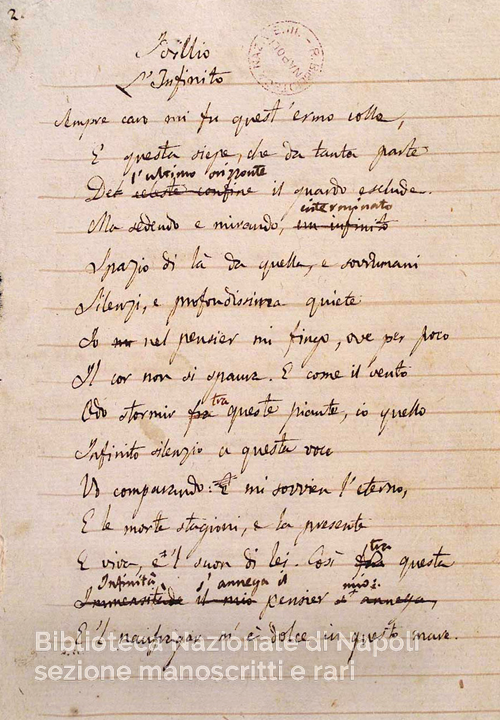 2.
Idillio
L'Infinito
Sempre caro mi fu quest'ermo colle,
E questa siepe, che da tanta parte
l'ultimo orizonte
Del celeste confine il guardo esclude.
interminato
Ma sedendo e mirando, un infinito
Spazio di là da quella, e sovrumani
Silenzi, e profondissima quiete
Io nel pensier mi fingo, ove per poco
Il cor non si spaura. E come il vento
tra
Odo stormir fra queste piante, io quello
Infinito silenzio a questa voce
Vo comparando: E mi sovvien l'eterno,
E le morte stagioni, e la presente
E viva, e 'l suon di lei. Così fra questa
tra
Infinità s'annega il mio:
Immensitade il mio pensier s'annega,
E 'l naufragar m'è dolce in questo mare.
Biblioteca Nazionale di Napoli
sezione manoscritti e rari